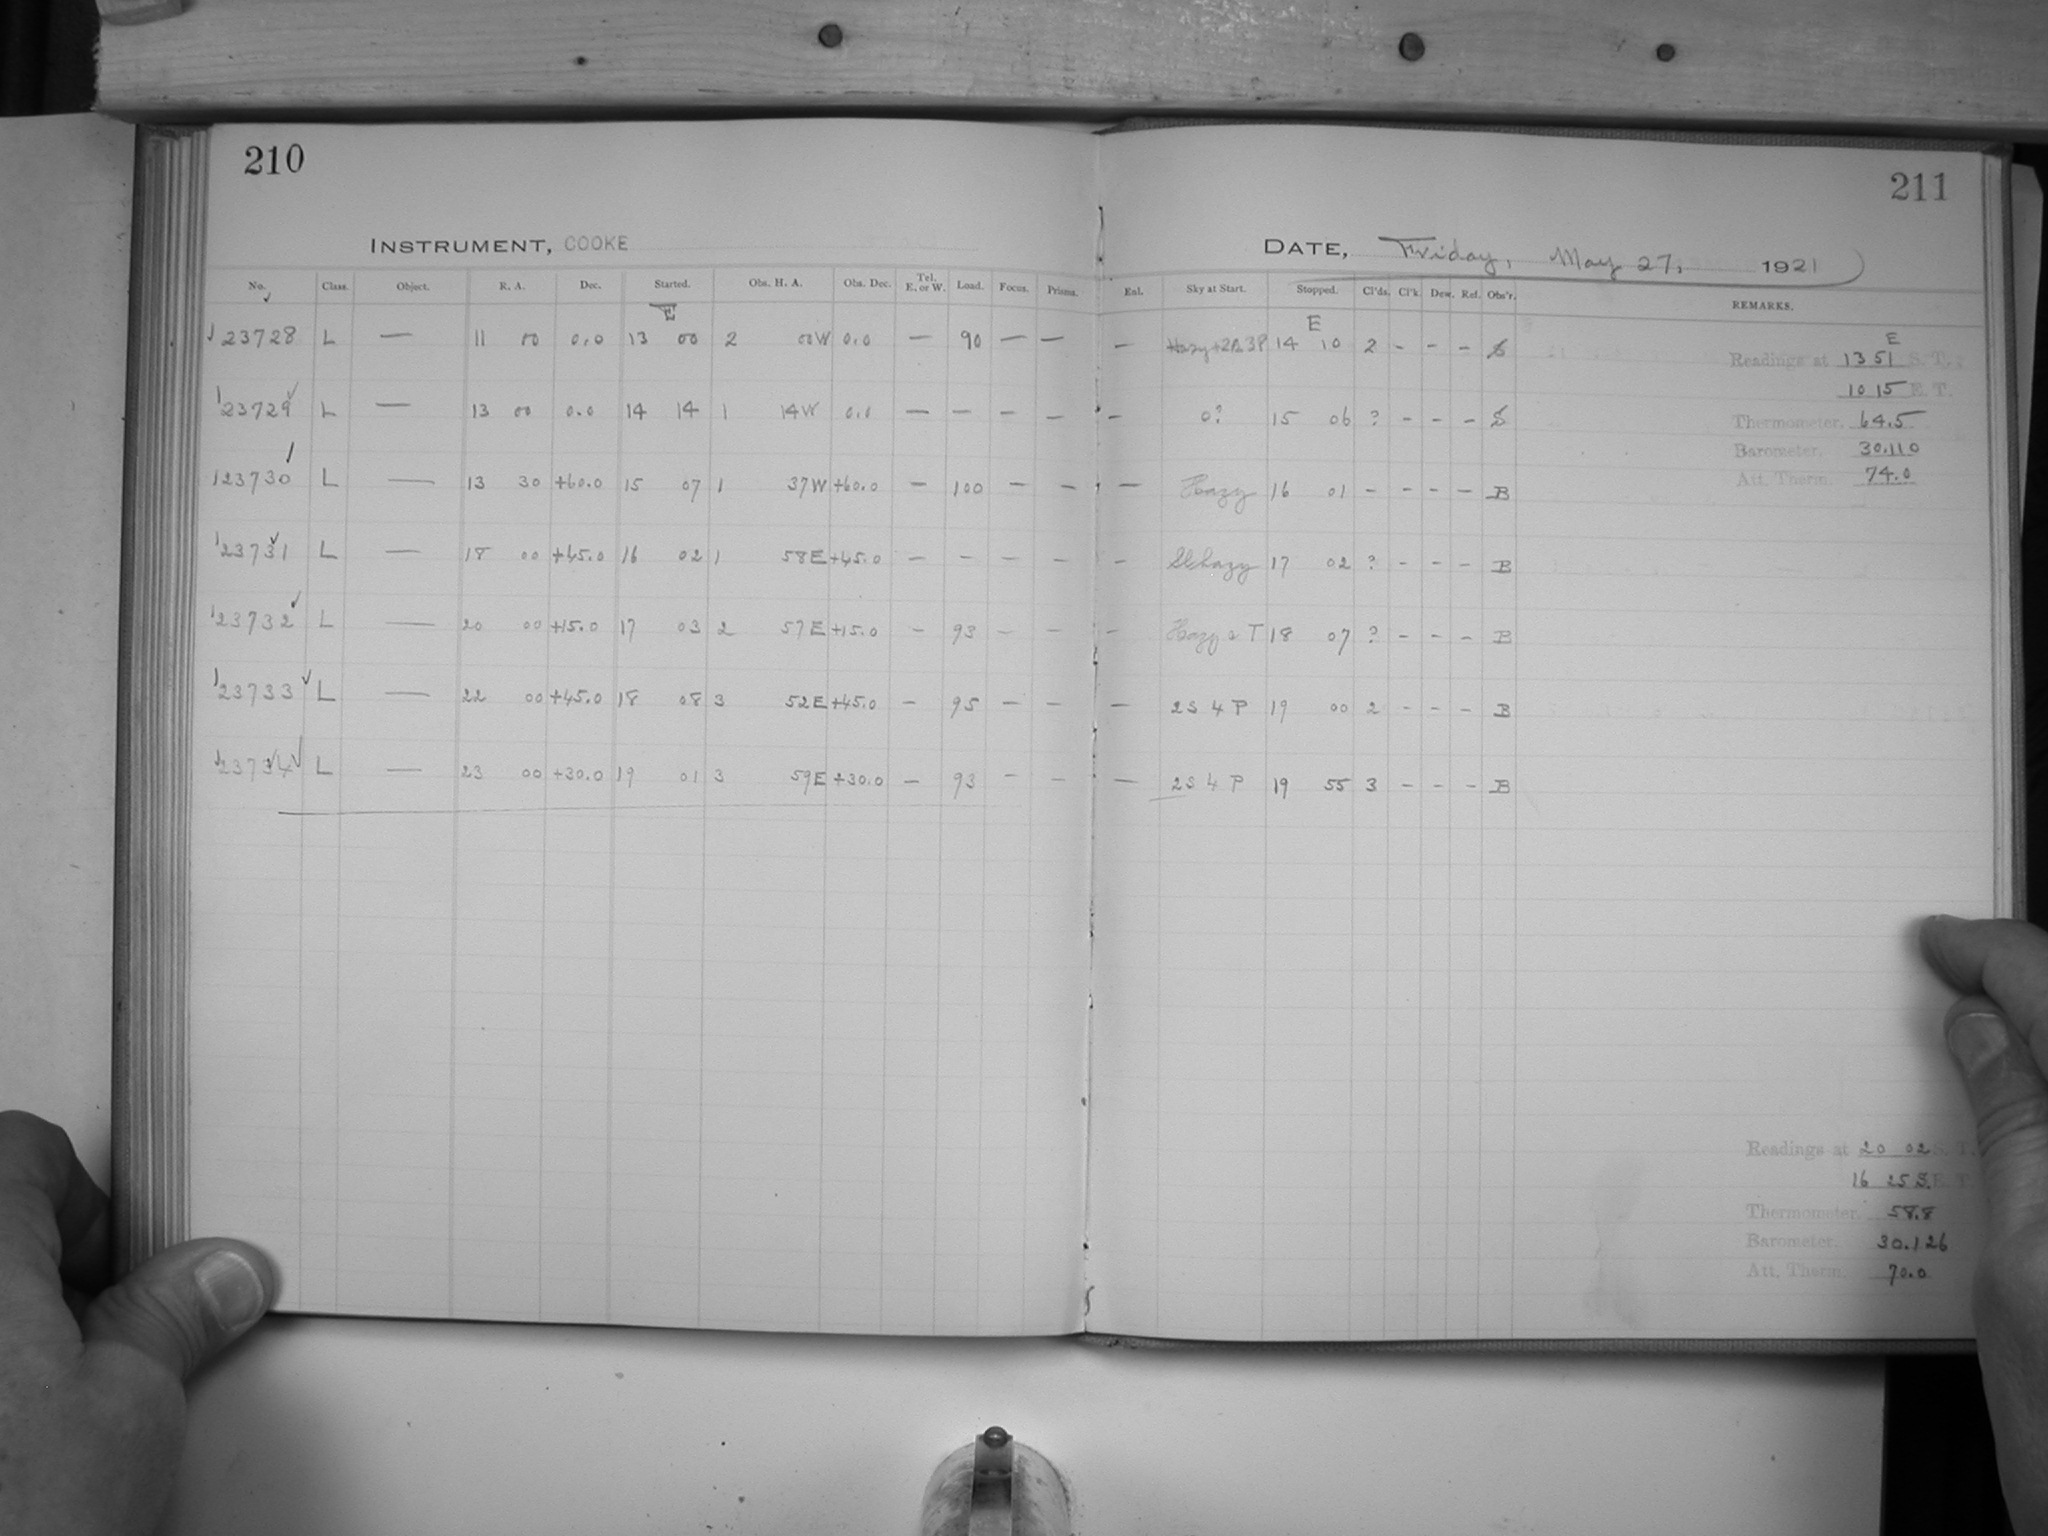 210
211
INSTRUMENT, COOKE
DATE, Friday, May 27, 1921
No. Class. Object. R. A. Dec. Started. Obs. H. A. Obs. Dec. Tel. E. or W. Load. Focus. Prisms. Enl. Sky at Start. Stopped. Cl'ds. Cl'k. Dew. Ref. Obs'r. REMARKS.
E E
23728 L — 11 00 0.0 13 00 2 00W 0.0 — 90 — — — 14 10 2 - - - S
23729 L — 13 00 0.0 14 14 1 14W 0.0 — — — — — 0? 15 06 ? - - - S
23730 L — 13 30 +60.0 15 07 1 37W +60.0 — 100 — — — Hazy 16 01 - - - - B
23731 L — 18 00 +45.0 16 02 1 58E +45.0 - - - - - Sl hazy 17 02 ? - - - B
23732 L — 20 00 +15.0 17 03 2 57E +15.0 - 93 - - - Hazy & T 18 07 ? - - - B
23733 L — 22 00 +45.0 18 08 3 52E +45.0 - 95 - - — 2S 4 P 19 00 2 - - - B
23734 L — 23 00 +30.0 19 01 3 59E +30.0 - 93 - - — 2S 4 P 19 55 3 - - - B
E
Readings at 13 51 S. T.
10 15 E. T.
Thermometer, 64.5
Barometer, 30.110
Att. Therm. 74.0
Readings at 20 02 S. T.
16 25 S. E. T.
Thermometer, 58.8
Barometer, 30.126
Att. Therm. 70.0